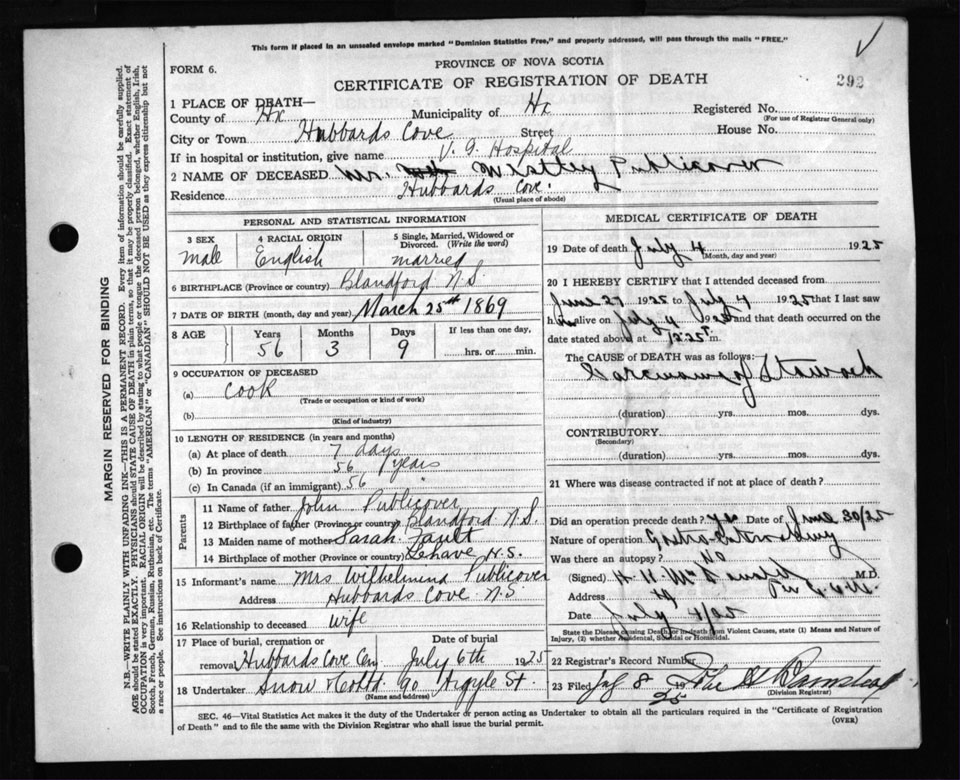 This form if placed in an unsealed envelope marked "Dominion Statistics Free," and properly addressed, will pass through the mails "FREE."
PROVINCE OF NOVA SCOTIA
FORM 6.
CERTIFICATE OF REGISTRATION OF DEATH
292
1 PLACE OF DEATH—
County of Hx Municipality of Hx Registered No.
(For use of Registrar General only)
City or Town Hubbards Cove Street House No.
If in hospital or institution, give name V. G. Hospital
2 NAME OF DECEASED Mr. Westley Publicover
Residence Hubbards Cove.
(Usual place of abode)
PERSONAL AND STATISTICAL INFORMATION
3 SEX 4 RACIAL ORIGIN 5 Single, Married, Widowed or Divorced. (Write the word)
male English married
6 BIRTHPLACE (Province or country) Blandford N.S.
7 DATE OF BIRTH (month, day and year) March 25th 1869
8 AGE Years Months Days If less than one day,
56 3 9 hrs. or min.
9 OCCUPATION OF DECEASED
(a) Cook
(Trade or occupation or kind of work)
(b)
(Kind of industry)
10 LENGTH OF RESIDENCE (in years and months)
(a) At place of death 7 days
(b) In province 56 years
(c) In Canada (if an immigrant) 56
Parents
11 Name of father John Publicover
12 Birthplace of father (Province or country) Blandford N.S.
13 Maiden name of mother Sarah Fault
14 Birthplace of mother (Province or country) Lehave N.S.
15 Informant's name Mrs Wilhelmina Publicover
Address Hubbards Cove N.S
16 Relationship to deceased wife
17 Place of burial, cremation or Date of burial
removal Hubbards Cove Cem July 6th 1925
18 Undertaker Snow & Co Ltd 90 Argyle St.
(Name and address)
MEDICAL CERTIFICATE OF DEATH
19 Date of death July 4 1925
(Month, day and year)
20 I HEREBY CERTIFY that I attended deceased from
June 27 1925 to July 4 1925 that I last saw
him alive on July 4 1925 and that death occurred on the
date stated above at 12.25 m.
The CAUSE OF DEATH was as follows:
Carcinoma of Stomach
(duration) yrs. mos. dys.
CONTRIBUTORY
(Secondary)
(duration) yrs. mos. dys.
21 Where was disease contracted if not at place of death?
Did an operation precede death? yes Date of June 30/25
Nature of operation Gastro-Enterostomy
Was there an autopsy? No
(Signed) M.D.
Address
Date July 4/25
State the Disease causing Death, or in death from Violent Causes, state (1) Means and Nature of Injury, (2) whether Accidental, Suicidal or Homicidal.
22 Registrar's Record Number
23 Filed July 8 1925
(Division Registrar)
SEC. 46—Vital Statistics Act makes it the duty of the Undertaker or person acting as Undertaker to obtain all the particulars required in the "Certificate of Registration
of Death" and to file the same with the Division Registrar who shall issue the burial permit.
(OVER)
MARGIN RESERVED FOR BINDING
N.B.—WRITE PLAINLY WITH UNFADING INK—THIS IS A PERMANENT RECORD. Every item of information should be carefully supplied.
AGE should be stated EXACTLY. PHYSICIANS should STATE CAUSE OF DEATH in plain terms, so that it may be properly classified. Exact statement of
OCCUPATION is very important. RACIAL ORIGIN will be described by stating to what people or tongue the deceased person belonged, whether English, Irish,
Scotch, French, German, Russian, Ruthenian, etc. The terms "AMERICAN" or "CANADIAN" SHOULD NOT BE USED as they express citizenship but not
a race or people. See instructions on back of Certificate.